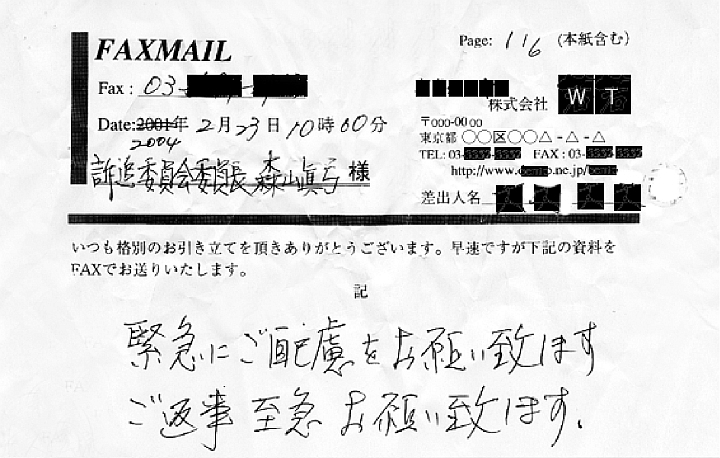 FAXMAIL
Page: 1/6 (本紙含む)
Fax : 03-
株式会社 W T
Date: 2001年 2月23日10時00分
2004
〒000-0000
東京都 ○○区○○△-△-△
TEL: 03- FAX : 03-
http://www. .ne.jp/
訴追委員会委員長 森山眞弓 様
差出人名
いつも格別のお引き立てを頂きありがとうございます。早速ですが下記の資料を
FAXでお送りいたします。
記
緊急にご配慮をお願い致します
ご返事 至急 お願い致します.